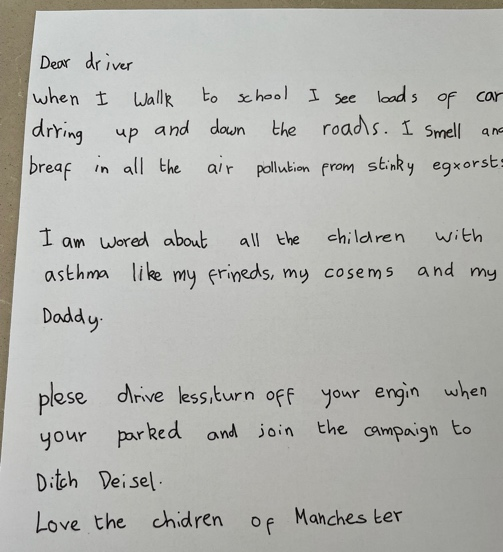 Dear driver
when I Wallk to school I see loads of car
drring up and down the roads. I smell and
breaf in all the air pollution from stinky egxorsts
I am wored about all the children with
asthma like my frineds, my cosems and my
Daddy.
plese drive less, turn off your engin when
your parked and join the campaign to
Ditch Deisel.
Love the chidren of Manchester